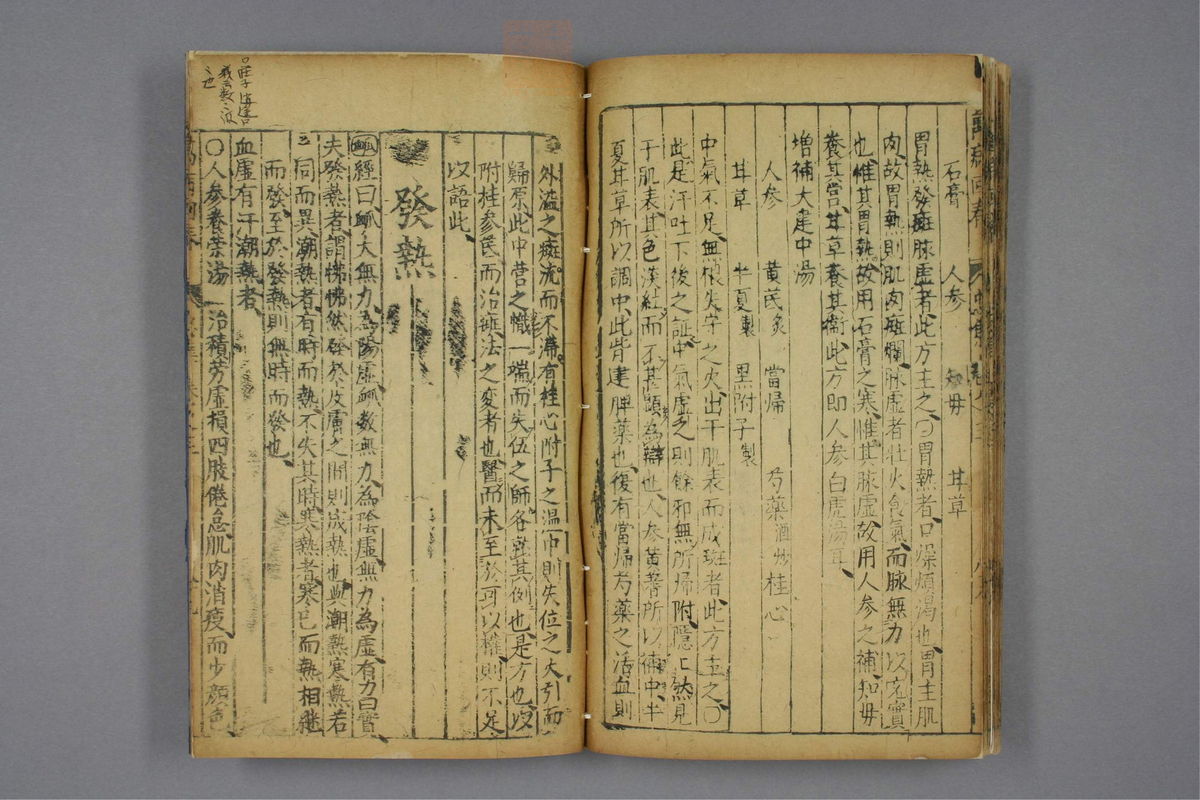 石膏　人參　知母　甘草
胃熱發斑脉虛者此方主之〇胃熱者口燥煩渴也胃主肌
肉故胃熱則肌肉斑爛脉虛者壯火食氣而脉無力以充實
也惟其胃熱故用石膏之寒惟其脉虛故用人參之補知毋
養其營甘草養其衛此方即人參白虎湯耳
增補大建中湯
人參　黃芪炙　當歸　芍藥酒炒　桂心
甘草　半夏製　黑附子製
中氣不足無根失守之火出于肌表而成斑者此方主之〇
此是汗吐下後之証中氣虛乏則餘邪無所歸附隱〻然見
于肌表其色淡紅而不甚顯為辯也人參黃蓍所以補中半
夏甘草所以調中此皆建脾藥也復有當歸芍藥之活血則
外溢之斑流而不滯有桂心附子之溫中則失位之火引而
歸原此中營之幟一端而失伍之師各就其例也是方也汶
附桂參芪而治斑法之変者也醫而未至於可以權則不足
以語此
發熱
經曰大無力為陽虛數無力為陰虛無力為虛有力曰實
夫發熱者謂怫怫然發於皮膚之間則成熱也與潮熱寒熱若
同而異潮熱者有時而熱不失其時寒熱者寒已而熱相継
而發至於發熱則無時而發也
血虛有汗潮熱者
〇人參養榮湯　治積勞虛損四肢倦怠肌肉消瘦而少顏色